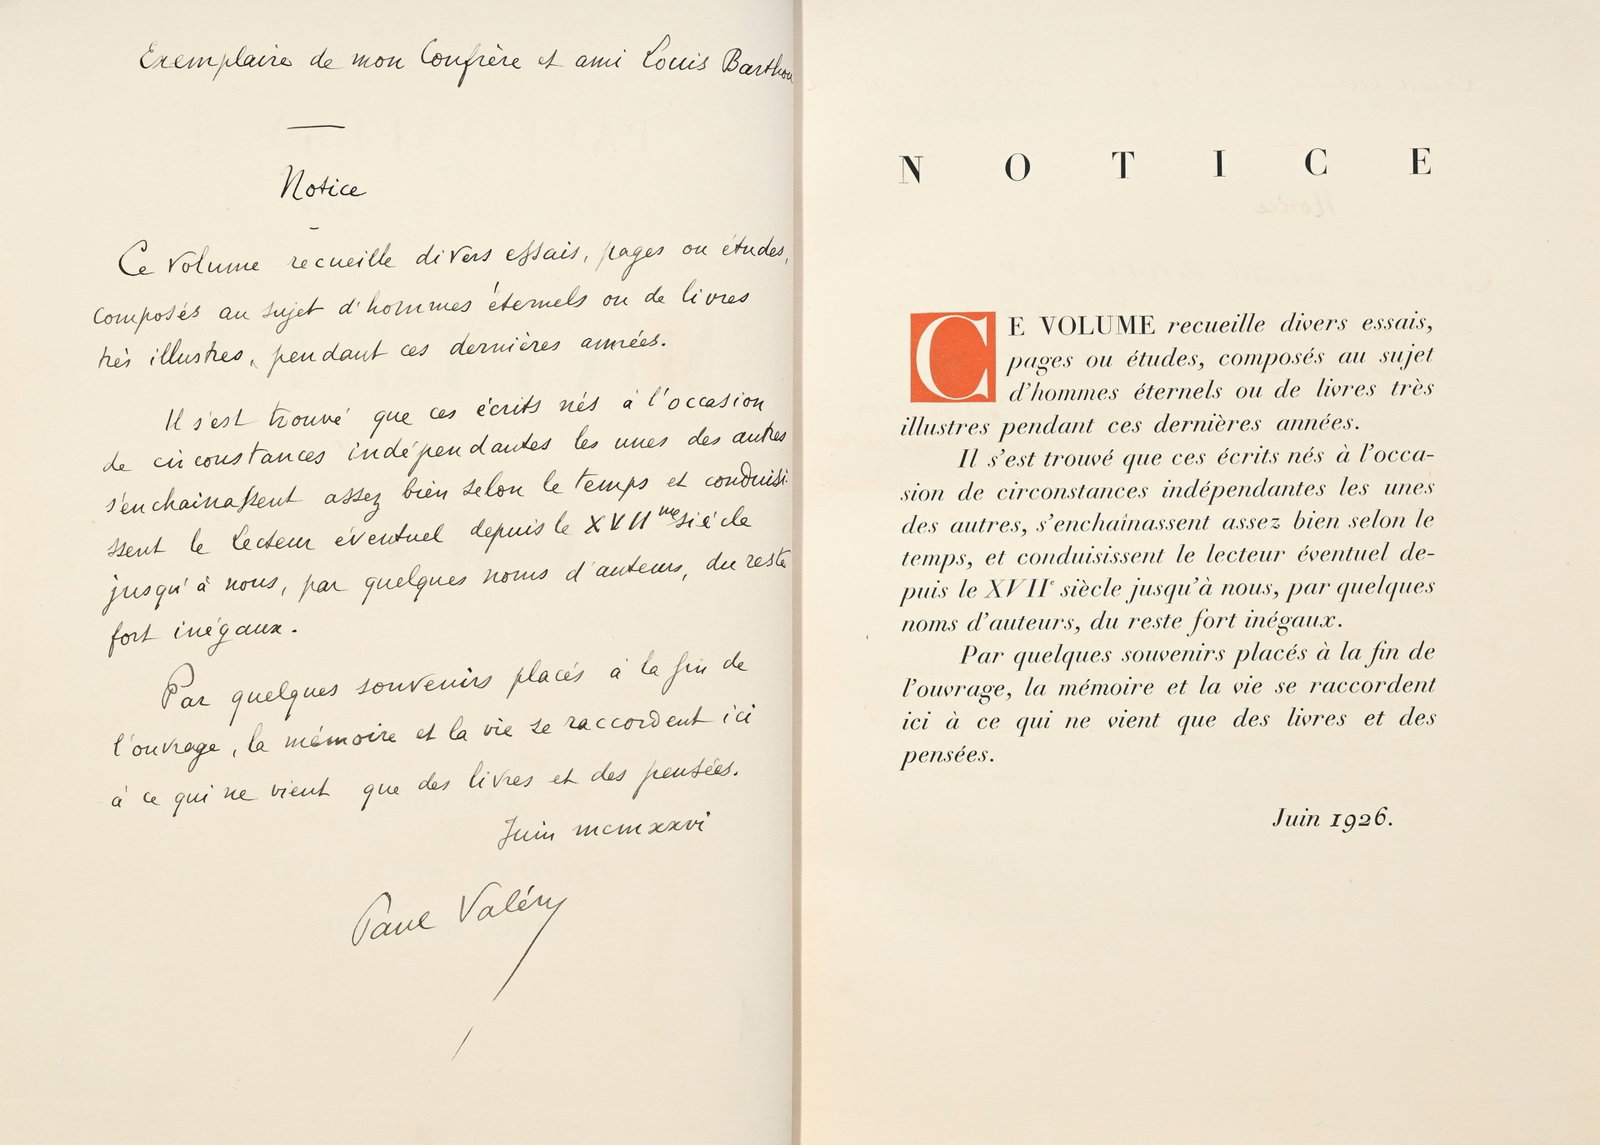 Exemplaire de mon Confrère et ami Louis Barthou
Notice
Ce volume recueille divers essais, pages ou études,
composés au sujet d'hommes éternels ou de livres
très illustres, pendant ces dernières années.
Il s'est trouvé que ces écrits nés à l'occasion
de circonstances indépendantes les unes des autres
s'enchaînassent assez bien selon le temps et conduisi-
ssent le Lecteur éventuel depuis le XVIIme siècle
jusqu'à nous, par quelques noms d'auteurs, du reste
fort inégaux.
Par quelques souvenirs placés à la fin de
l'ouvrage, la mémoire et la vie se raccordent ici
à ce qui ne vient que des livres et des pensées.
Juin mcmxxvi
Paul Valéry
NOTICE
CE VOLUME recueille divers essais,
pages ou études, composés au sujet
d'hommes éternels ou de livres très
illustres pendant ces dernières années.
Il s'est trouvé que ces écrits nés à l'occa-
sion de circonstances indépendantes les unes
des autres, s'enchaînassent assez bien selon le
temps, et conduisissent le lecteur éventuel de-
puis le XVIIe siècle jusqu'à nous, par quelques
noms d'auteurs, du reste fort inégaux.
Par quelques souvenirs placés à la fin de
l'ouvrage, la mémoire et la vie se raccordent
ici à ce qui ne vient que des livres et des
pensées.
Juin 1926.